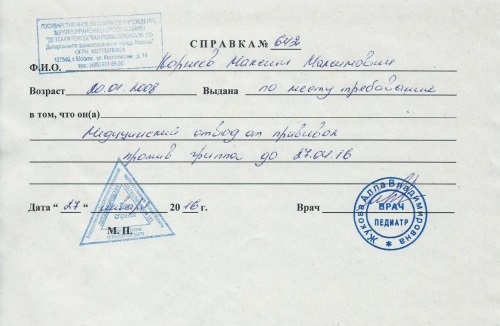 ГОСУДАРСТВЕННОЕ БЮДЖЕТНОЕ УЧРЕЖДЕНИЕ
ЗДРАВООХРАНЕНИЯ ГОРОДА МОСКВЫ
"ДЕТСКАЯ ГОРОДСКАЯ ПОЛИКЛИНИКА
Департамента здравоохранения города Москвы"
г. Москва, ул.
СПРАВКА № 642
Ф.И.О. Максим Максимович
Возраст 20.01.2008 Выдана по месту требования
в том, что он(а)
Медицинский отвод от прививок
против гриппа до 27.04.16
Дата " 27 " января 20 16 г. Врач
М. П.
Жукова Алла Владимировна
ВРАЧ
ПЕДИАТР